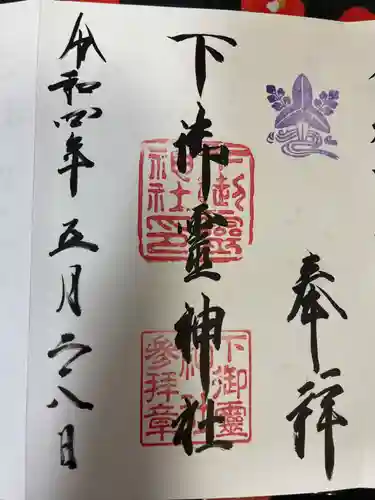 奉拝
下御靈神社
下御靈神社印
下御靈神社参拝章
令和四年五月二八日